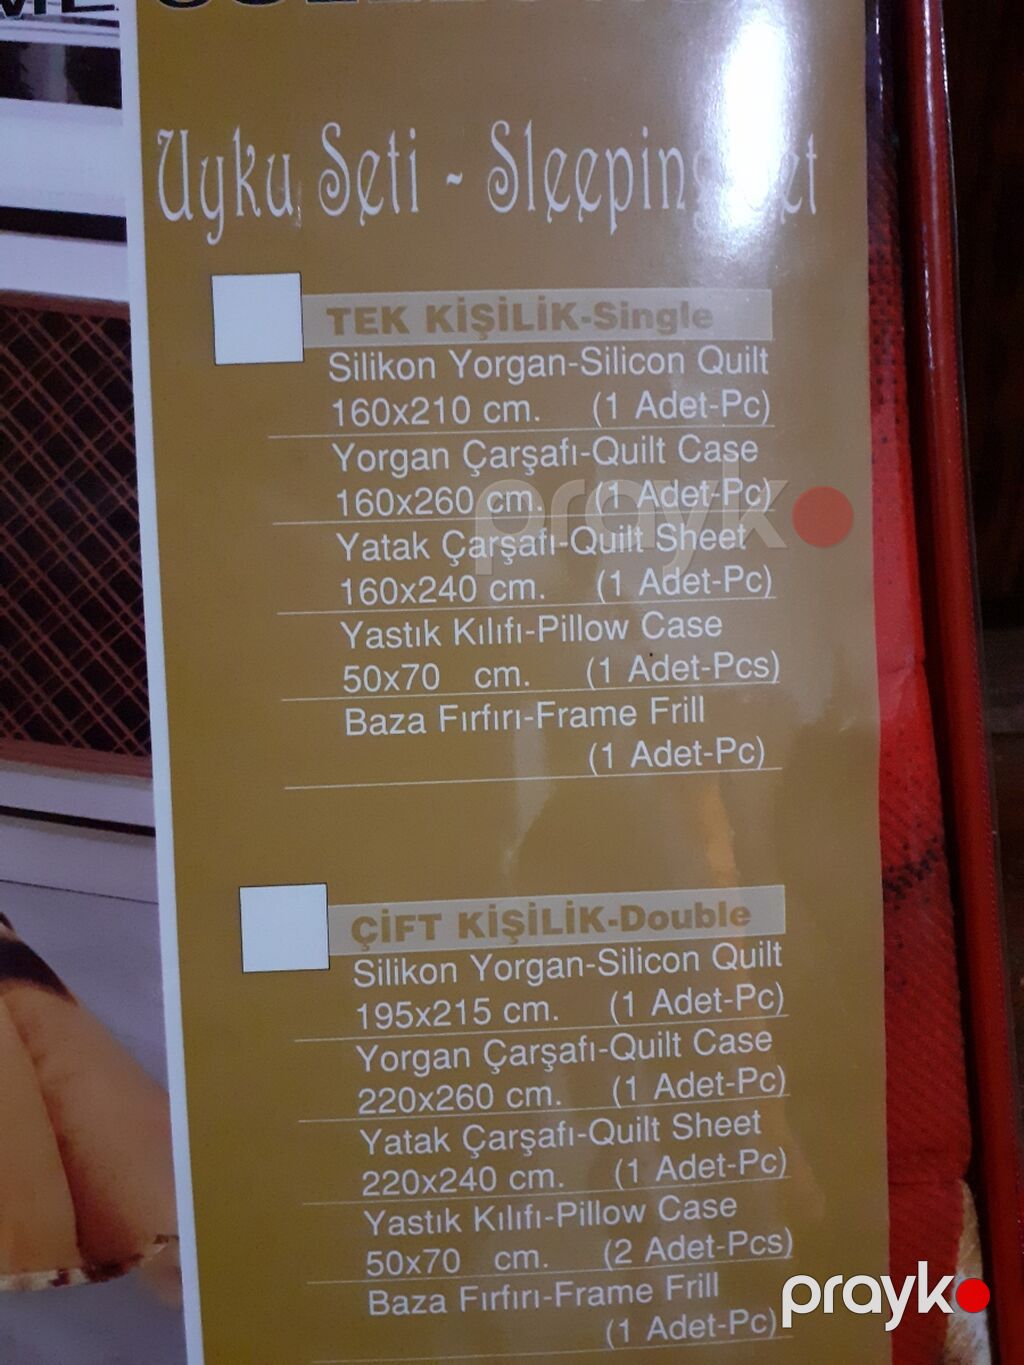 Uyku Seti - Sleeping
TEK KİŞİLİK-Single
Silikon Yorgan-Silicon Quilt
160x210 cm. (1 Adet-Pc)
Yorgan Çarşafı-Quilt Case
160x260 cm. (1 Adet-Pc)
prayko
Yatak Çarşafı-Quilt Sheet
160x240 cm. (1 Adet-Pc)
Yastık Kılıfı-Pillow Case
50x70 cm. (1 Adet-Pcs)
Baza Fırfırı-Frame Frill
(1 Adet-Pc)
ÇİFT KİŞİLİK-Double
Silikon Yorgan-Silicon Quilt
195x215 cm. (1 Adet-Pc)
Yorgan Çarşafı-Quilt Case
220x260 cm. (1 Adet-Pc)
Yatak Çarşafı-Quilt Sheet
220x240 cm. (1 Adet-Pc)
Yastık Kılıfı-Pillow Case
50x70 cm. (2 Adet-Pcs)
Baza Fırfırı-Frame Frill
(1 Adet-Pc)
prayko